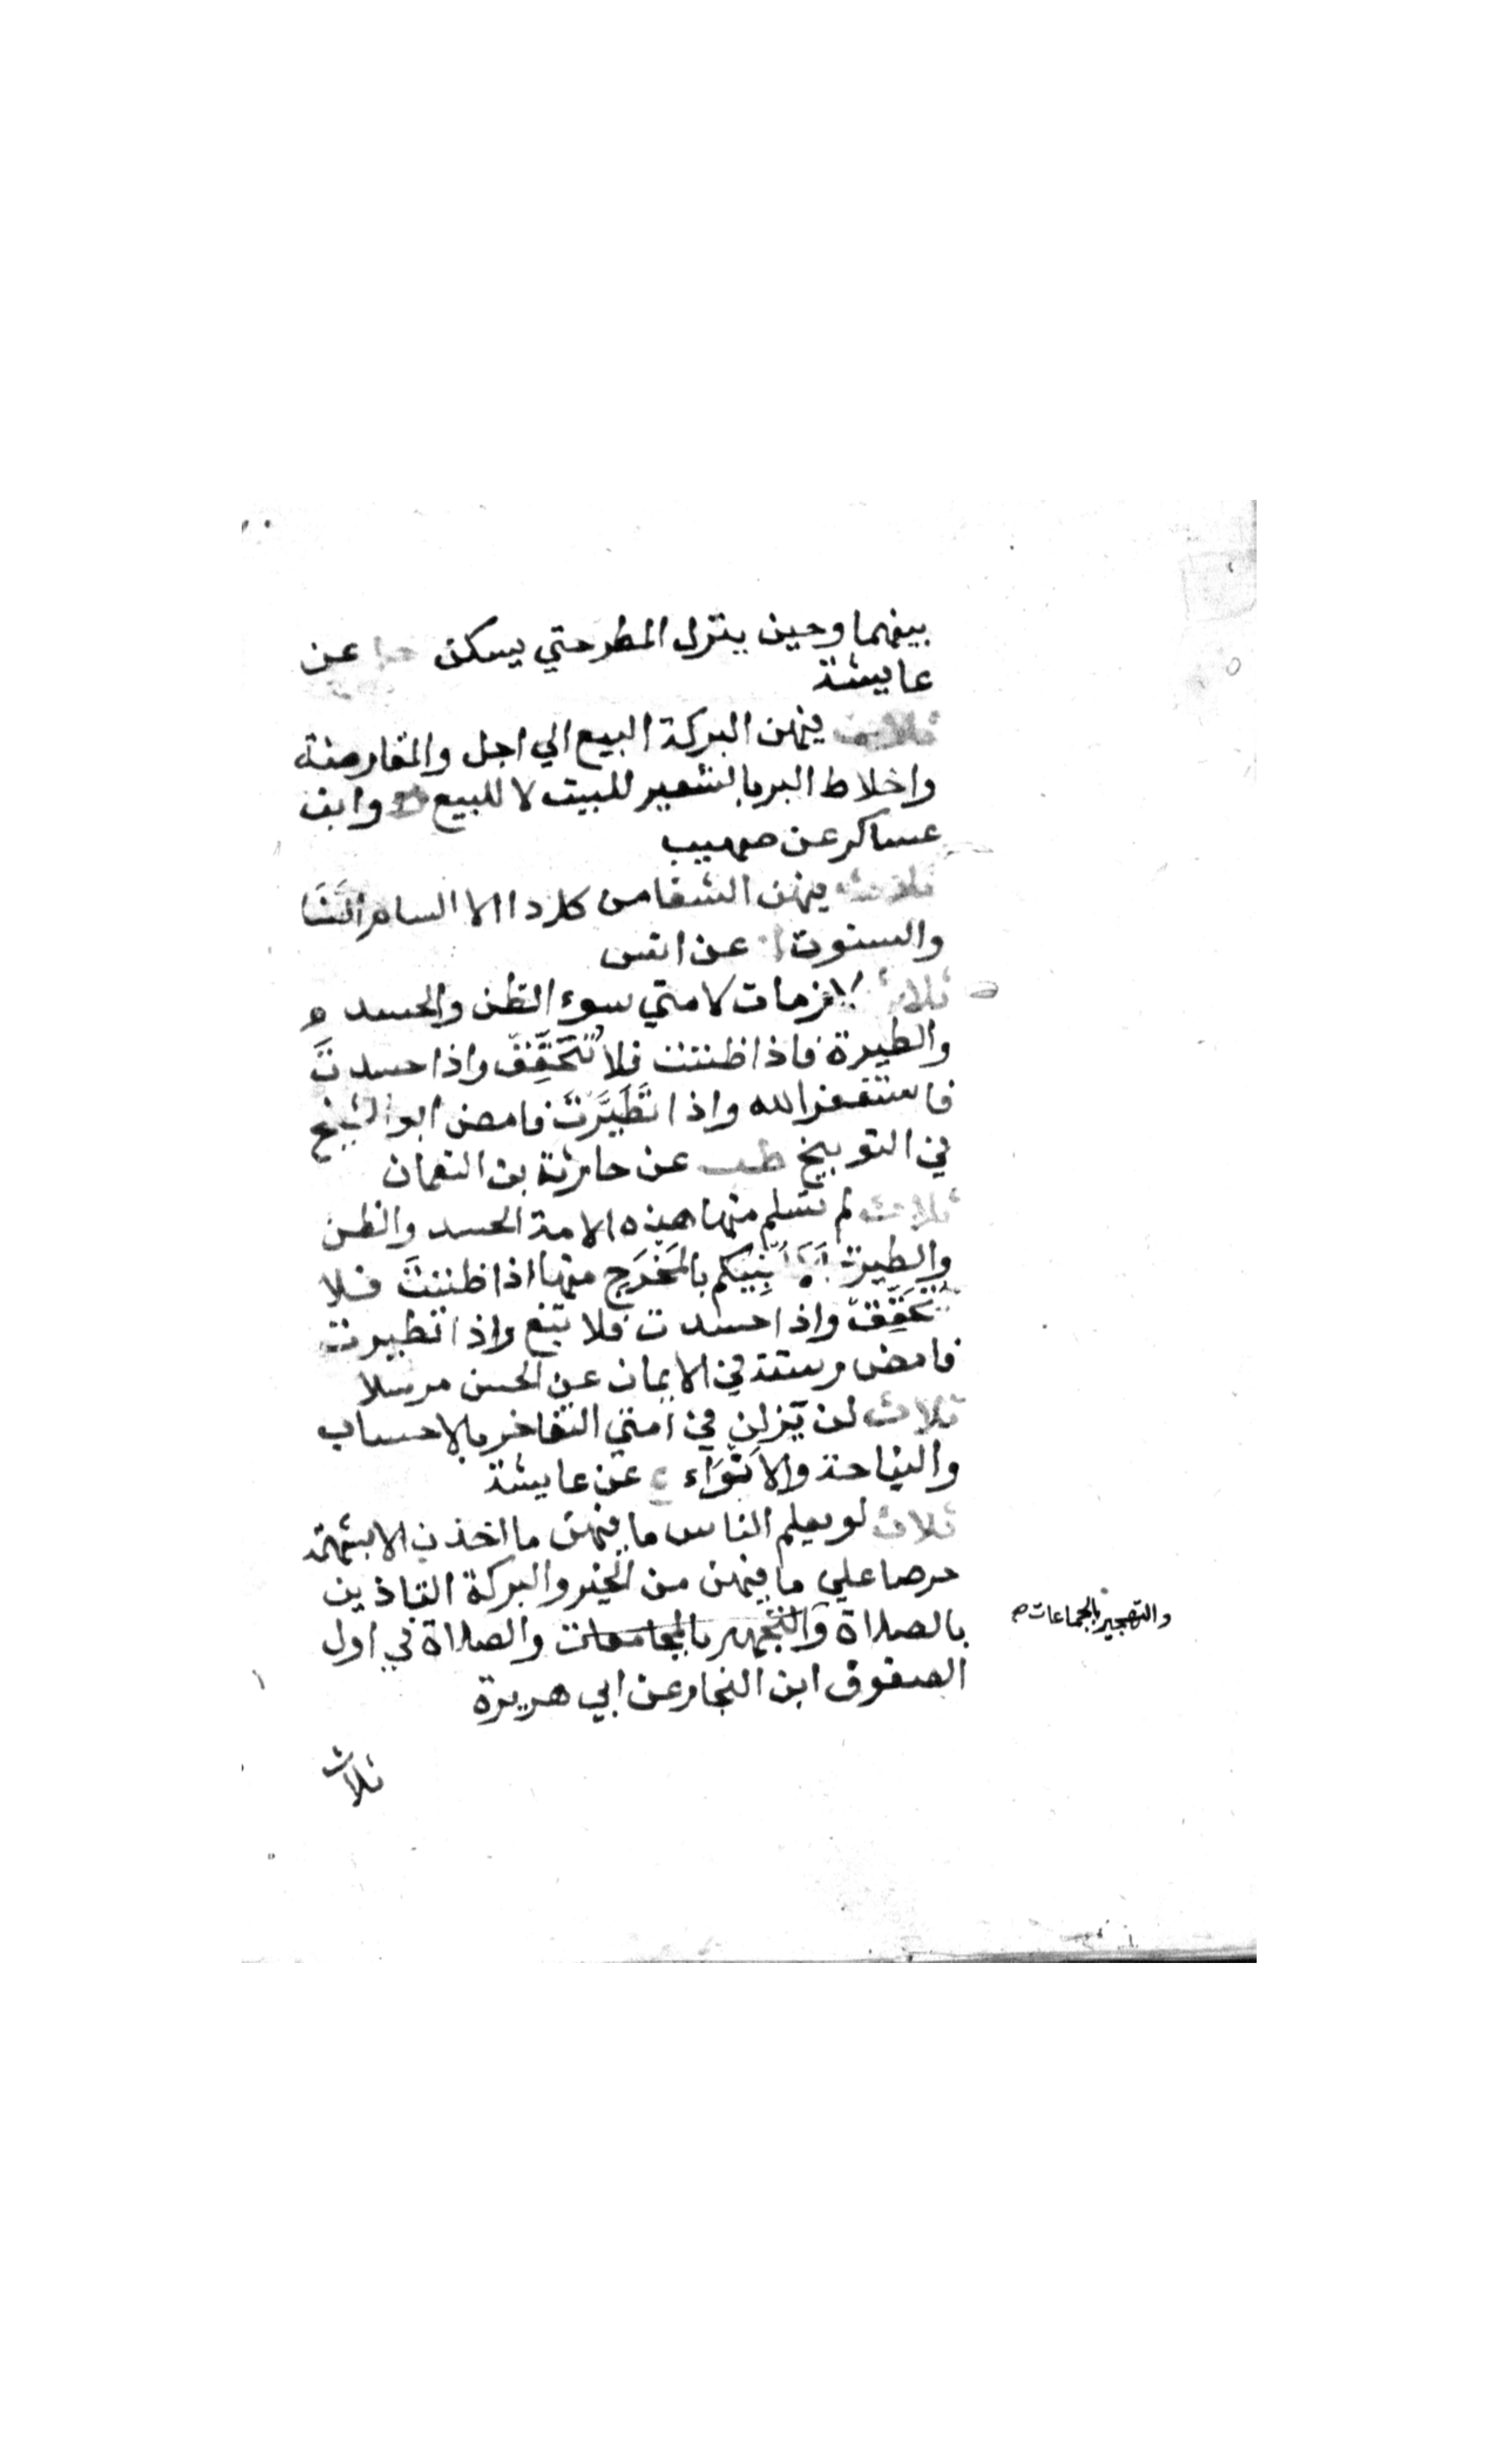 بينهما وحين ينزل المطر حتي يسكن حل عن
عايشة
ثلاث فيهن البركة البيع الي اجل والمقارضة
واخلاط البر بالشعير للبيت لا للبيع ه وابن
عساكر عن صهيب
ثلاث فيهن الشفا من كل دا الا السام السَّنَا
والسنوت ن عن انس
ثلاث لازمات لامتي سوء الظن والحسد
والطيرة فاذا ظننت فلا تُحَقِّقْ واذا حسدتَ
فاستغفر الله واذا تَطَيَّرْتَ فامض ابو الشيخ
في التوبيخ طب عن حارثة بن النعمان
ثلاث لم تسلم منها هذه الامة الحسد والظن
والطيرة اَلَا اُنَبِّيكم بالمَخْرَج منها اذا ظننتَ فلا
تُحَقِّقْ واذا حسدت فلا تبغ واذا تطيرت
فامض رسته في الايمان عن الحسن مرسلا
ثلاث لن يَزلن في امتي التفاخر بالاحساب
والنياحة والاَنْوَآء ع عن عايشة
ثلاث لو يعلم الناس ما فيهن ما اخذن الا بسهمة
حرصا علي ما فيهن من الخير والبركة التاذين
بالصلاة والتجهير بالجماعات والصلاة في اول
والتهجير بالجماعات صح
الصفوف ابن النجار عن ابي هريرة
ثلاث